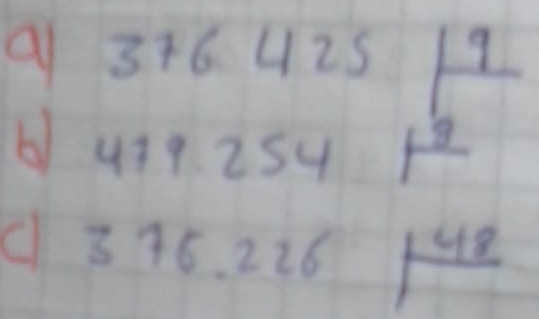 a) 376 425 | 9
b) 479.254 | 8
c) 376.226 | 48